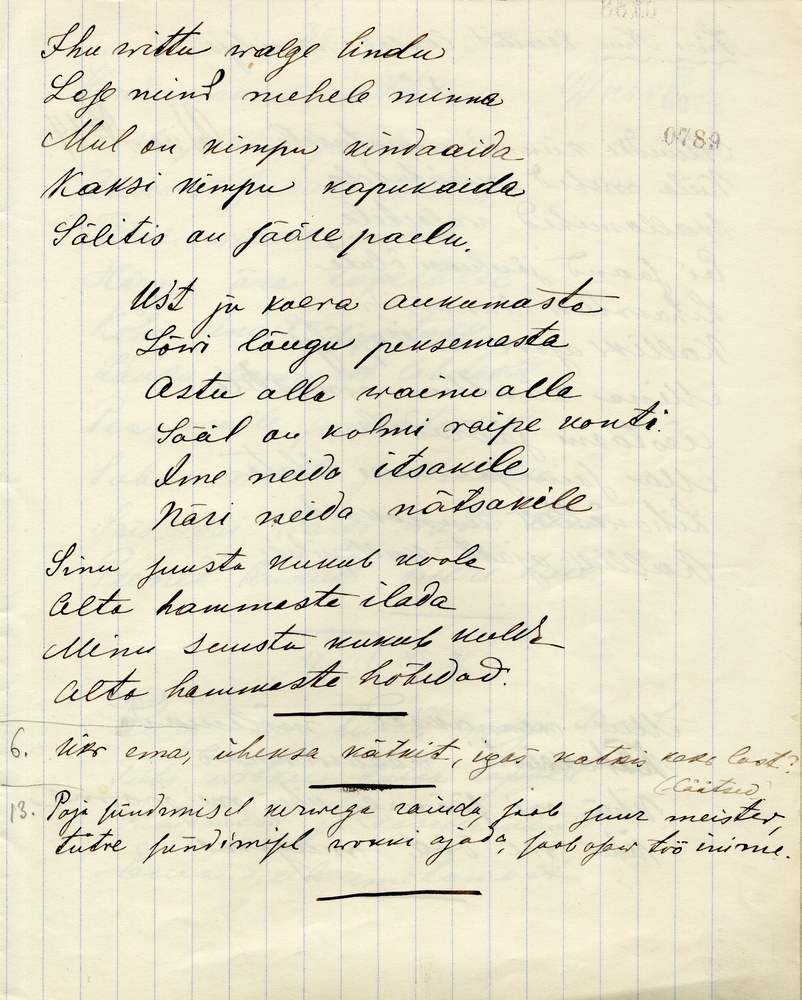 0789
Ihu wittu walge lindu
Lase neind mehele minna
Mul on kimpu kindaaida
Kaksi kimpu kapukaida
Sälitis on sääre paelu.
Ust ju kaera aukumasta
Lõwi lõugu peksemasta
Astu alla wainu alla
Sääl on kolmi raipe konti.
Ime neida itsakile
Näri neida nätsakile
Sinu suusta kukub koola
Alta hammaste ilada
Minu suusta kukub kulda
Alta hammaste hõbedad.
6. Üks ema, üheksa kätkit, igas katkis kaks last?
(Läätsed
13. Poja sündimisel kerwega raiuda, saab suur meister,
tütre sündimisel wokki ajada, saab osaw töö inime.